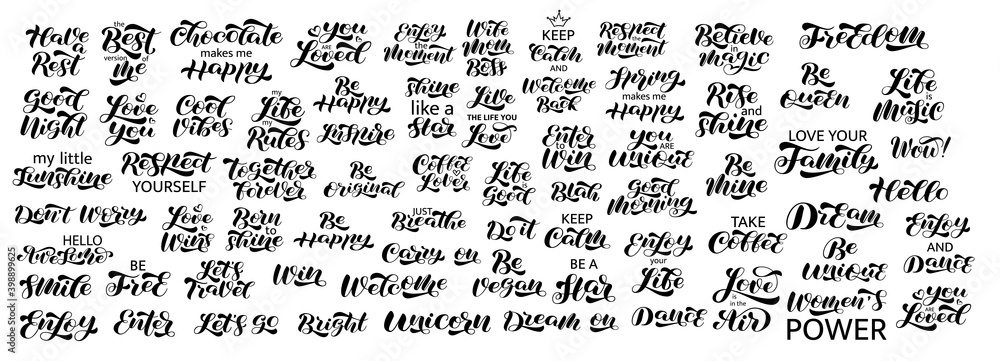 Have
a
Rest
the
Best
version of
me
Chocolate
makes me
Happy
you
ARE
Loved
Enjoy
the
moment
Wife
Mom
Boss
KEEP
Calm
AND
Welcome
Back
Respect
the
moment
Believe
in
magic
Freedom
Good
Night
Love
you
Cool
vibes
my
Life
my
Rules
Be
Happy
Inspire
shine
like a
Star
Live
THE LIFE YOU
Love
Enter
to
Win
Spring
makes me
Happy
you
ARE
unique
Rise
and
shine
Be
Queen
Life
is
Music
my little
Sunshine
Respect
YOURSELF
Together
Forever
Be
Original
Coffee
Lover
Life
is
Good
Blah
Good
morning
Be
mine
LOVE YOUR
Family
Wow!
Hello
Don't Worry
Love
Wins
Born
to
shine
Be
Happy
JUST
Breathe
Do it
KEEP
Calm
Enjoy
your
Life
TAKE
Coffee
Dream
Enjoy
AND
Dance
HELLO
Awesome
Smile
BE
Free
Let's
Travel
Win
Carry on
Welcome
Be
vegan
BE A
Star
Love
is in the
Air
Be
unique
Women's
POWER
you
ARE
Loved
Enjoy
Enter
Let's go
Bright
Unicorn
Dream on
Dance
Adobe Stock | #398899625